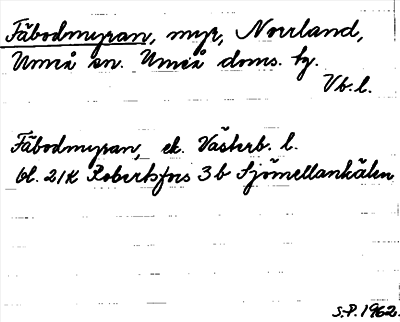 Fäbodmyran, myr, Norrland,
Umeå sn. Umeå doms. hg.
Vb. l.
Fäbodmyran, ek. Västerb. l.
bl. 21K Robertsfors 3b Sjömellankälen
S.P. 1962.